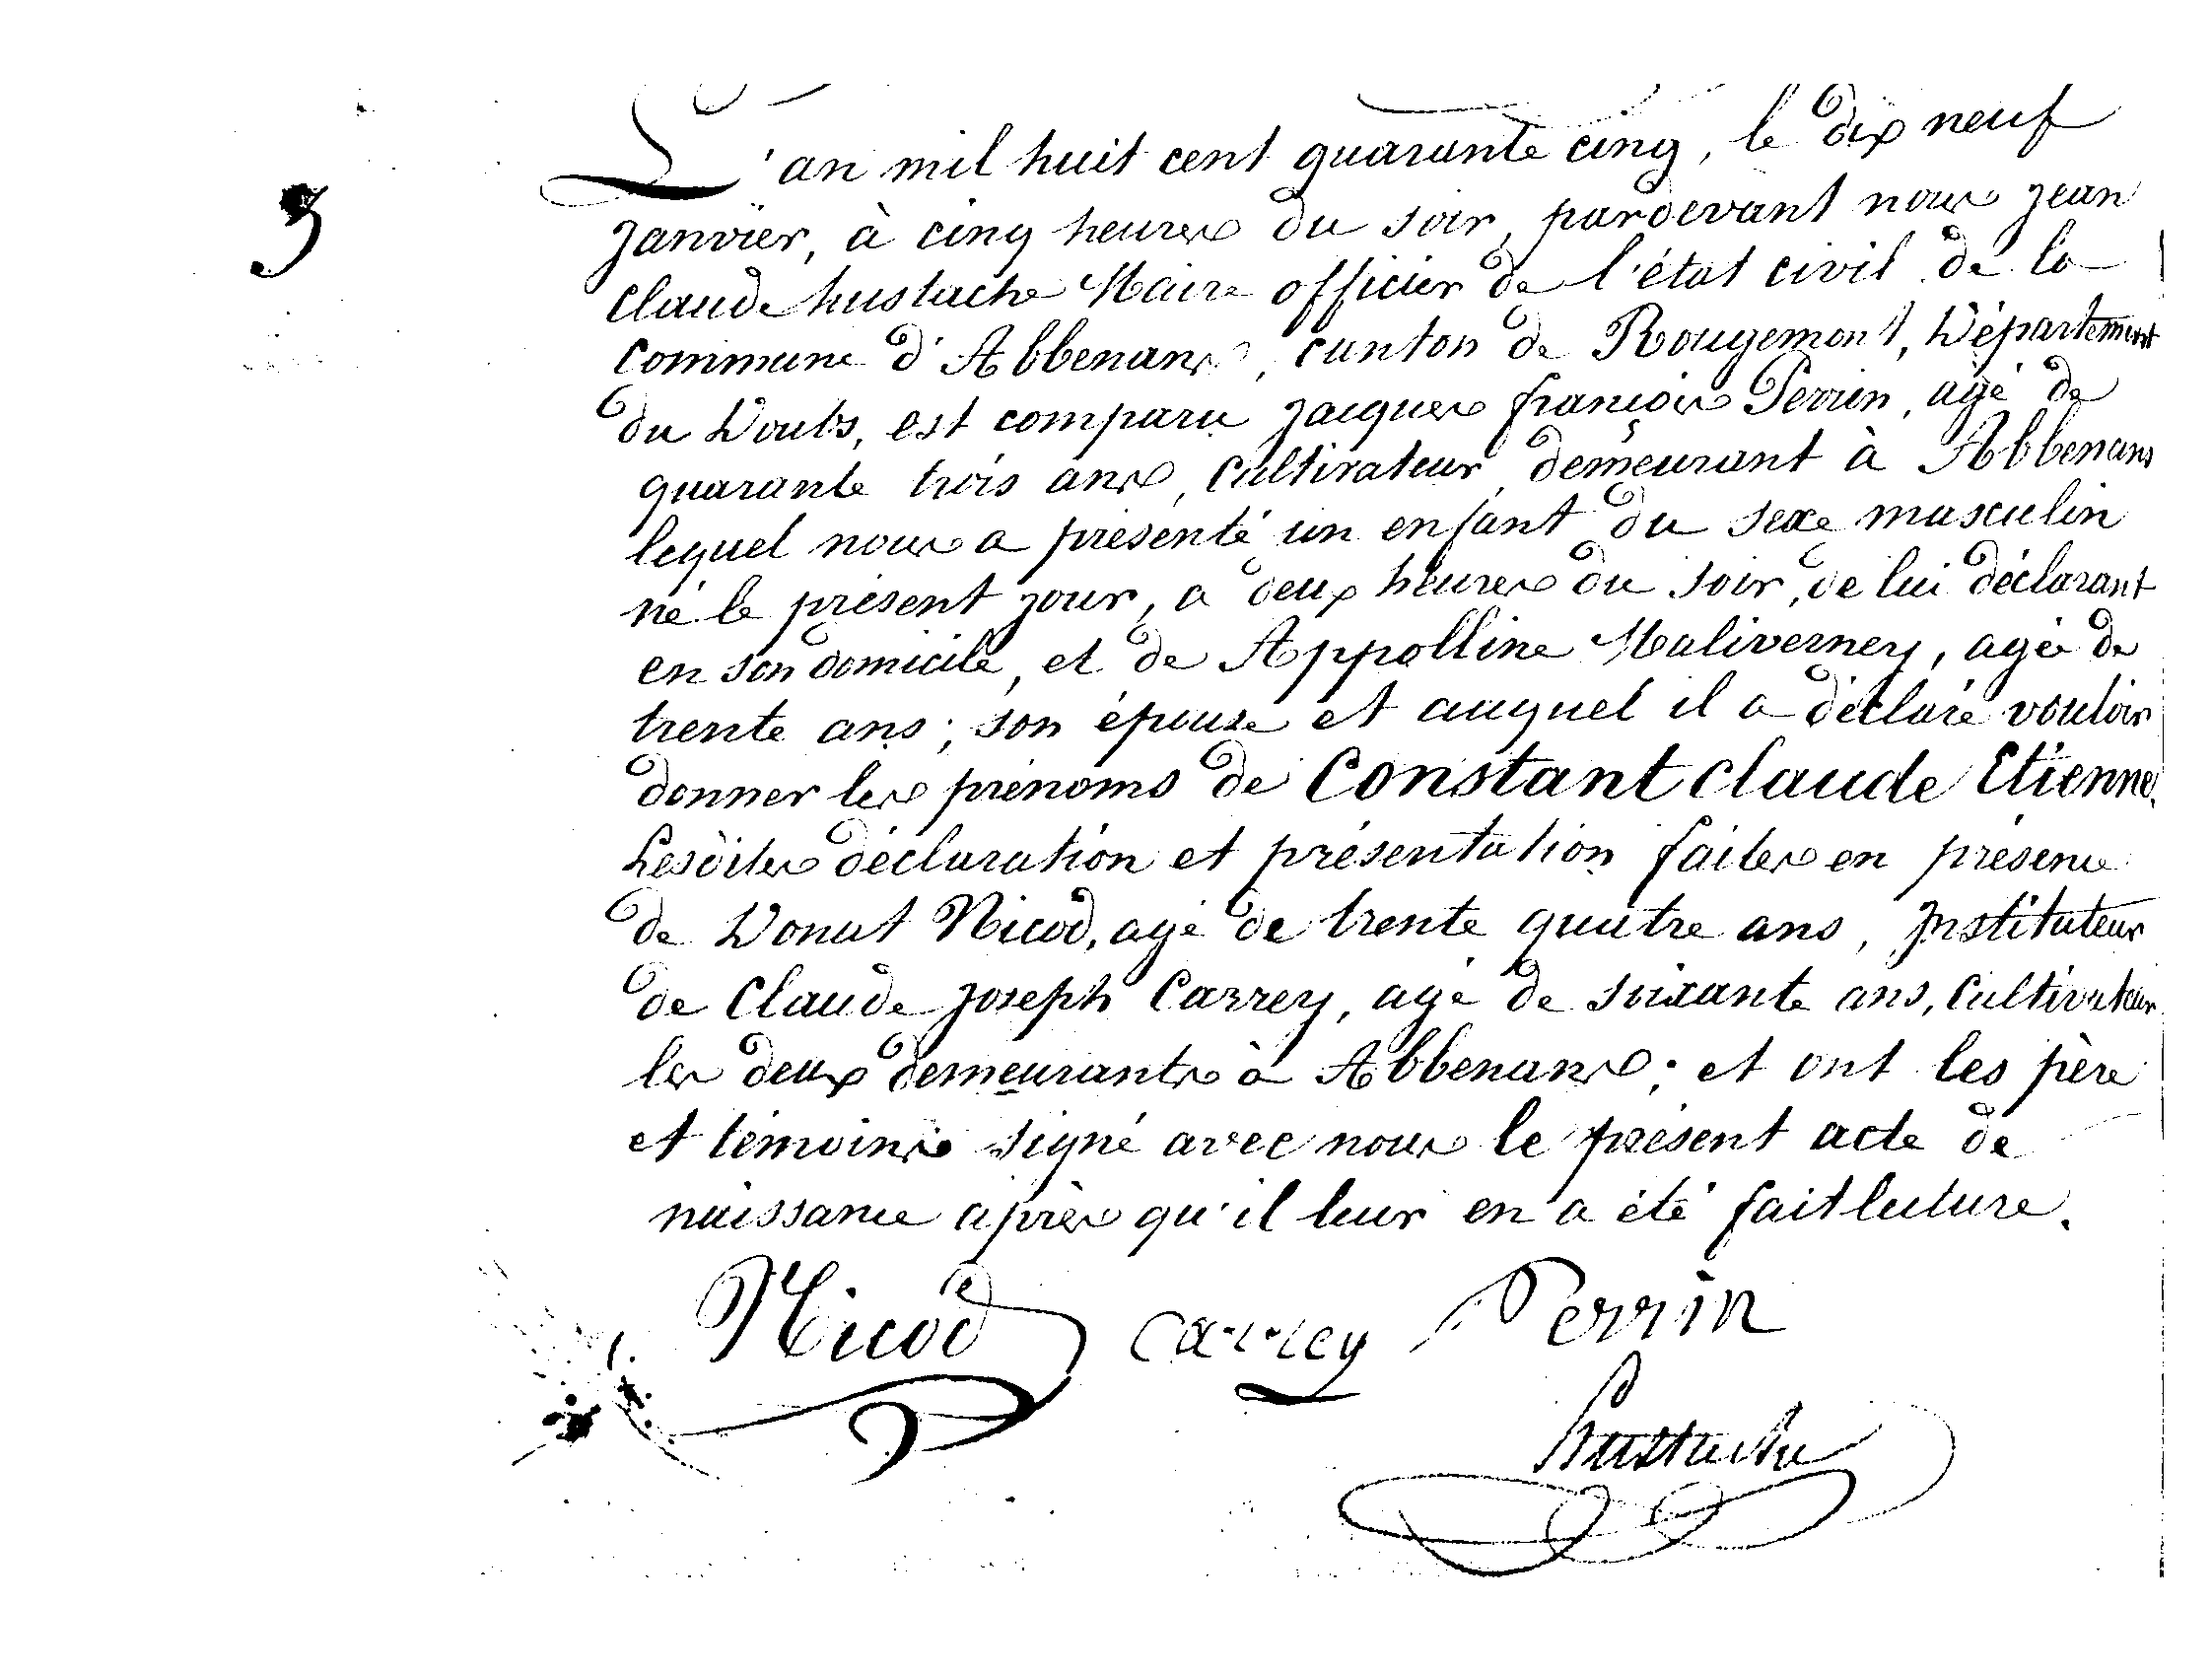 3
L'an mil huit cent quarante cinq, le dix neuf
Janvier, à cinq heures du soir, pardevant nous Jean
Claude hustache Maire officier de l'état civil de la
commune d'Abbenans, canton de Rougemont, Département
du Doubs, est comparu Jacques françois Perrin, agé de
quarante trois ans, Cultivateur, demeurant à Abbenans
lequel nous a présenté un enfant du sexe masculin
né le présent jour, a deux heures du soir, de lui déclarant
en son domicile, et de Appolline Maliverney, agée de
trente ans; son épouse et auquel il a déclaré vouloir
donner les prénoms de Constant Claude Etienne.
Lesdites déclaration et présentation faites en présence
de Donat Nicod, agé de trente quatre ans, Instituteur
de Claude Joseph Carrey, agé de soixante ans, Cultivateur
les deux demeurants à Abbenans; et ont les père
et témoins signé avec nous le présent acte de
naissance après qu'il leur en a été fait lecture.
Nicod Carrey Perrin
hustache